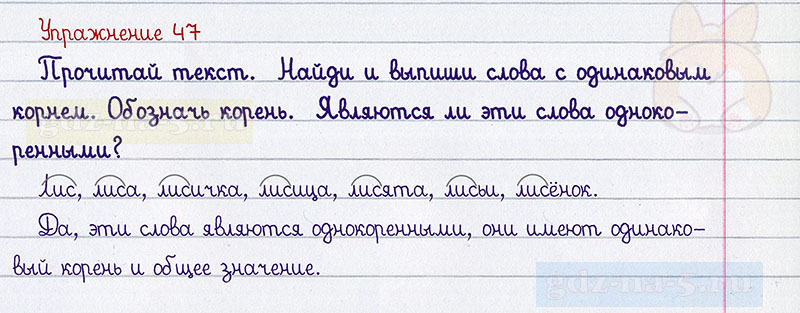 Упражнение 47
Прочитай текст. Найди и выпиши слова с одинаковым
корнем. Обозначь корень. Являются ли эти слова одноко-
ренными?
Лис, лиса, лисичка, лисица, лисята, лисы, лисёнок.
Да, эти слова являются однокоренными, они имеют одинако-
вый корень и общее значение.
gdz-na-5.ru
gdz-na-5.ru